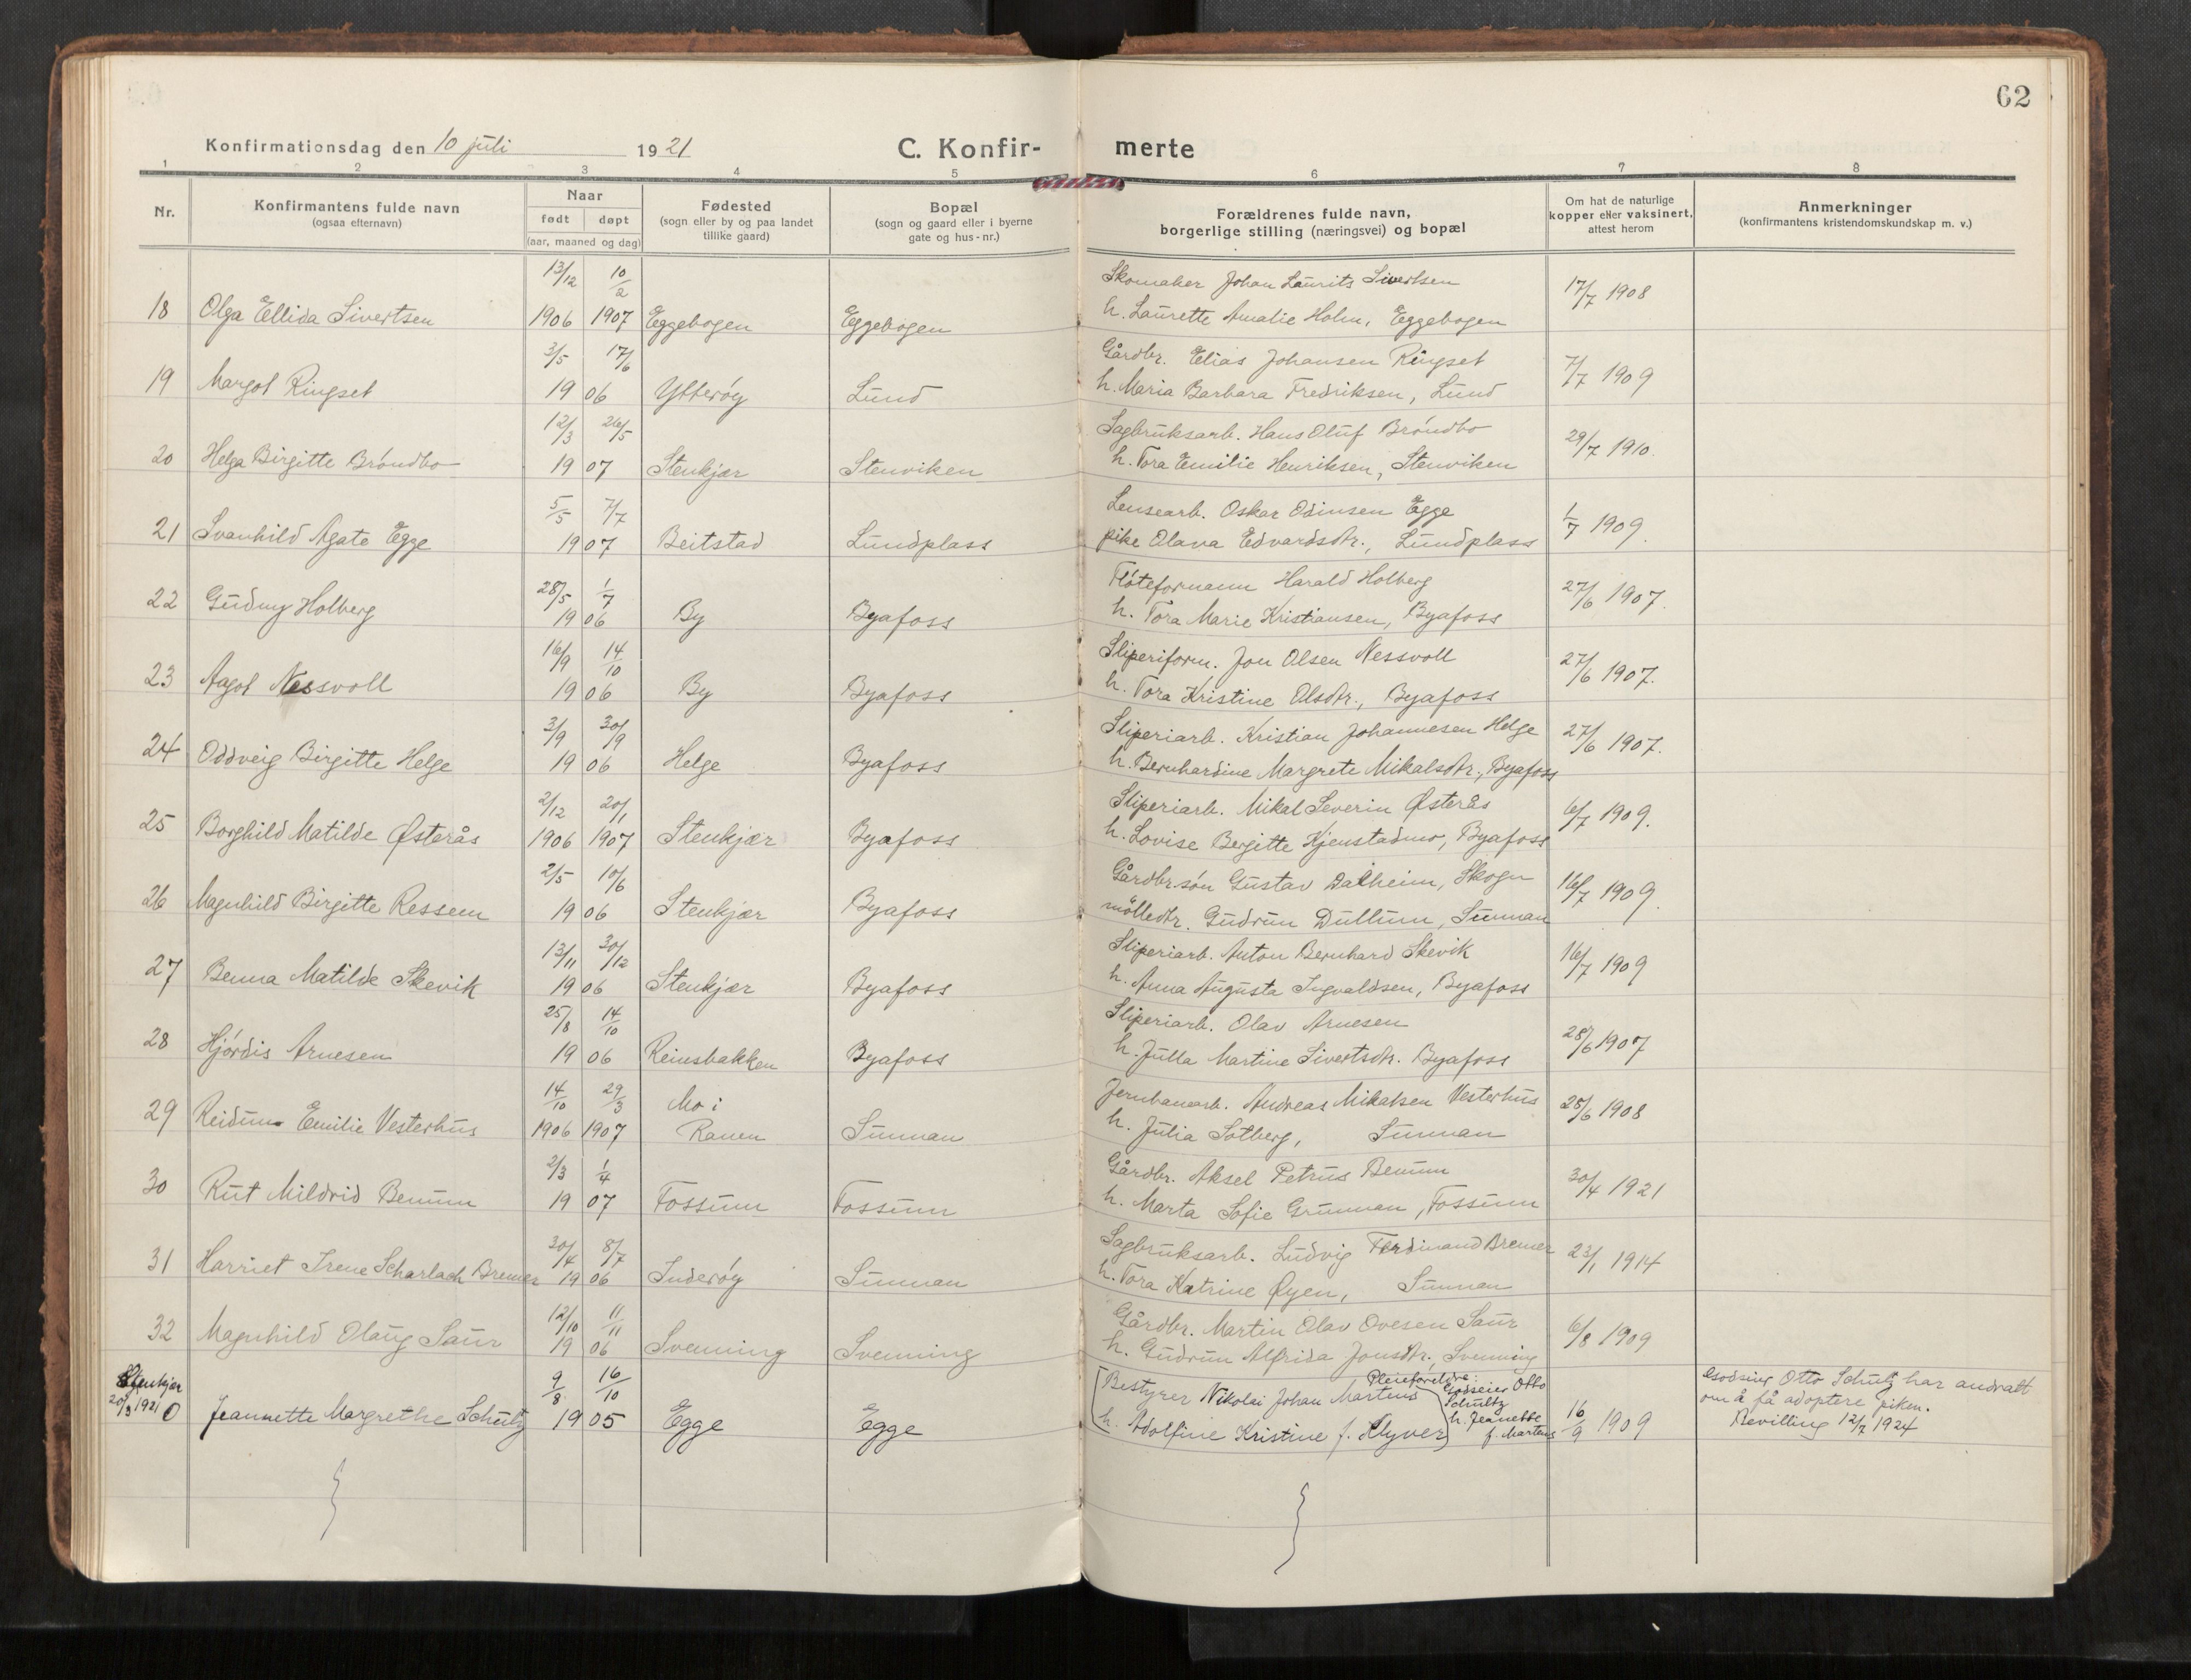 62
Konfirmationsdag den 10 juli 1921
C. Konfir- merte
1 2 3 4 5 6 7 8
Nr.
Konfirmantens fulde navn
(ogsaa efternavn)
Naar
født døpt
(aar, maaned og dag)
Fødested
(sogn eller by og paa landet
tillike gaard)
Bopæl
(sogn og gaard eller i byerne
gate og hus-nr.)
Forældrenes fulde navn,
borgerlige stilling (næringsvei) og bopæl
Om hat de naturlige
kopper eller vaksinert,
attest herom
Anmerkninger
(konfirmantens kristendomskundskap m. v.)
13/12 10/2 Skomaker Johan Laurits Sivertsen 17/7 1908
18 Olga Ellida Sivertsen 1906 1907 Eggebogen Eggebogen h. Laurette Amalie Holm, Eggebogen
3/5 17/6 Gårdbr. Elias Johansen Ringset 7/7 1909
19 Margot Ringset 1906 Ytterøy Lund h. Maria Barbara Fredriksen, Lund
12/3 26/5 Sagbruksarb. Hans Oluf Bröndbo 29/7 1910.
20 Helga Birgitte Bröndbo 1907 Stenkjær Stenviken h. Tora Emilie Henriksen, Stenviken
5/5 7/7 Lensearb. Oskar Odinsen Egge 1/7 1909.
21 Svanhild Agate Egge 1907 Beitstad Lundplass pike Olava Edvardsdtr., Lundplass
28/5 1/7 Flöteformann Harald Holberg 27/6 1907.
22 Gudny Holberg 1906 By Byafoss h. Tora Marie Kristiansen, Byafoss
16/9 14/10 Sliperiform. Jon Olsen Nessvoll 27/6 1907.
23 Aagot Nessvoll 1906 By Byafoss h. Tora Kristine Olsdtr., Byafoss
3/9 30/9 Sliperiarb. Kristian Johannesen Helge 27/6 1907.
24 Oddveig Birgitte Helge 1906 Helge Byafoss h. Bernhardine Margrete Mikalsdtr., Byafoss
2/12 20/1 Sliperiarb. Mikal Severin Østerås 6/7 1909.
25 Borghild Matilde Østerås 1906 1907 Stenkjær Byafoss h. Lovise Bergitte Kjenstadmo, Byafoss
2/5 10/6 Gårdbr.sön Gustav Dalheim, Skogn 16/7 1909.
26 Magnhild Birgitte Ressem 1906 Stenkjær Byafoss mölledtr. Gudrun Dullum, Sunnan
13/11 30/12 Sliperiarb. Anton Bernhard Skevik 16/7 1909
27 Benna Matilde Skevik 1906 Stenkjær Byafoss h. Anna Augusta Ingvaldsen, Byafoss
25/8 14/10 Sliperiarb. Olav Arnesen 28/6 1907
28 Hjördis Arnesen 1906 Reinsbakken Byafoss h. Julla Martine Sivertsdtr. Byafoss
14/10 29/3 Mo i Jernbanearb. Andreas Mikalsen Vesterhus 25/6 1908
29 Reidun Emilie Vesterhus 1906 1907 Ranen Sunnan h. Julia Solberg, Sunnan
2/3 1/4 Gårdbr. Aksel Petrus Benum 30/4 1921
30 Rut Mildrid Benum 1907 Fossum Fossum h. Marta Sofie Grunnan, Fossum
30/4 8/7 Sagbruksarb. Ludvig Ferdinand Bremer 23/1 1914
31 Harriet Irene Scharlach Bremer 1906 Inderøy Sunnan h. Tora Katrine Øyen, Sunnan
12/10 11/11 Gårdbr. Martin Olav Ovesen Saur 6/8 1909
32 Magnhild Olaug Saur 1906 Svenning Svenning h. Gudrun Alfrida Jonsdtr., Svenning
Stenkjær 9/8 16/10 Bestyrer Nikolai Johan Martens Pleieforeldre: Godseier Otto Schultz Godseier Otto Schultz har andratt
20/3 1921 0 Jeannette Margrethe Schultz 1905 Egge Egge h. Adolfine Kristine f. Klyver h. Jeanette f. Martens 16/9 1909 om å få adoptere piken.
Bevilling 12/7 1924